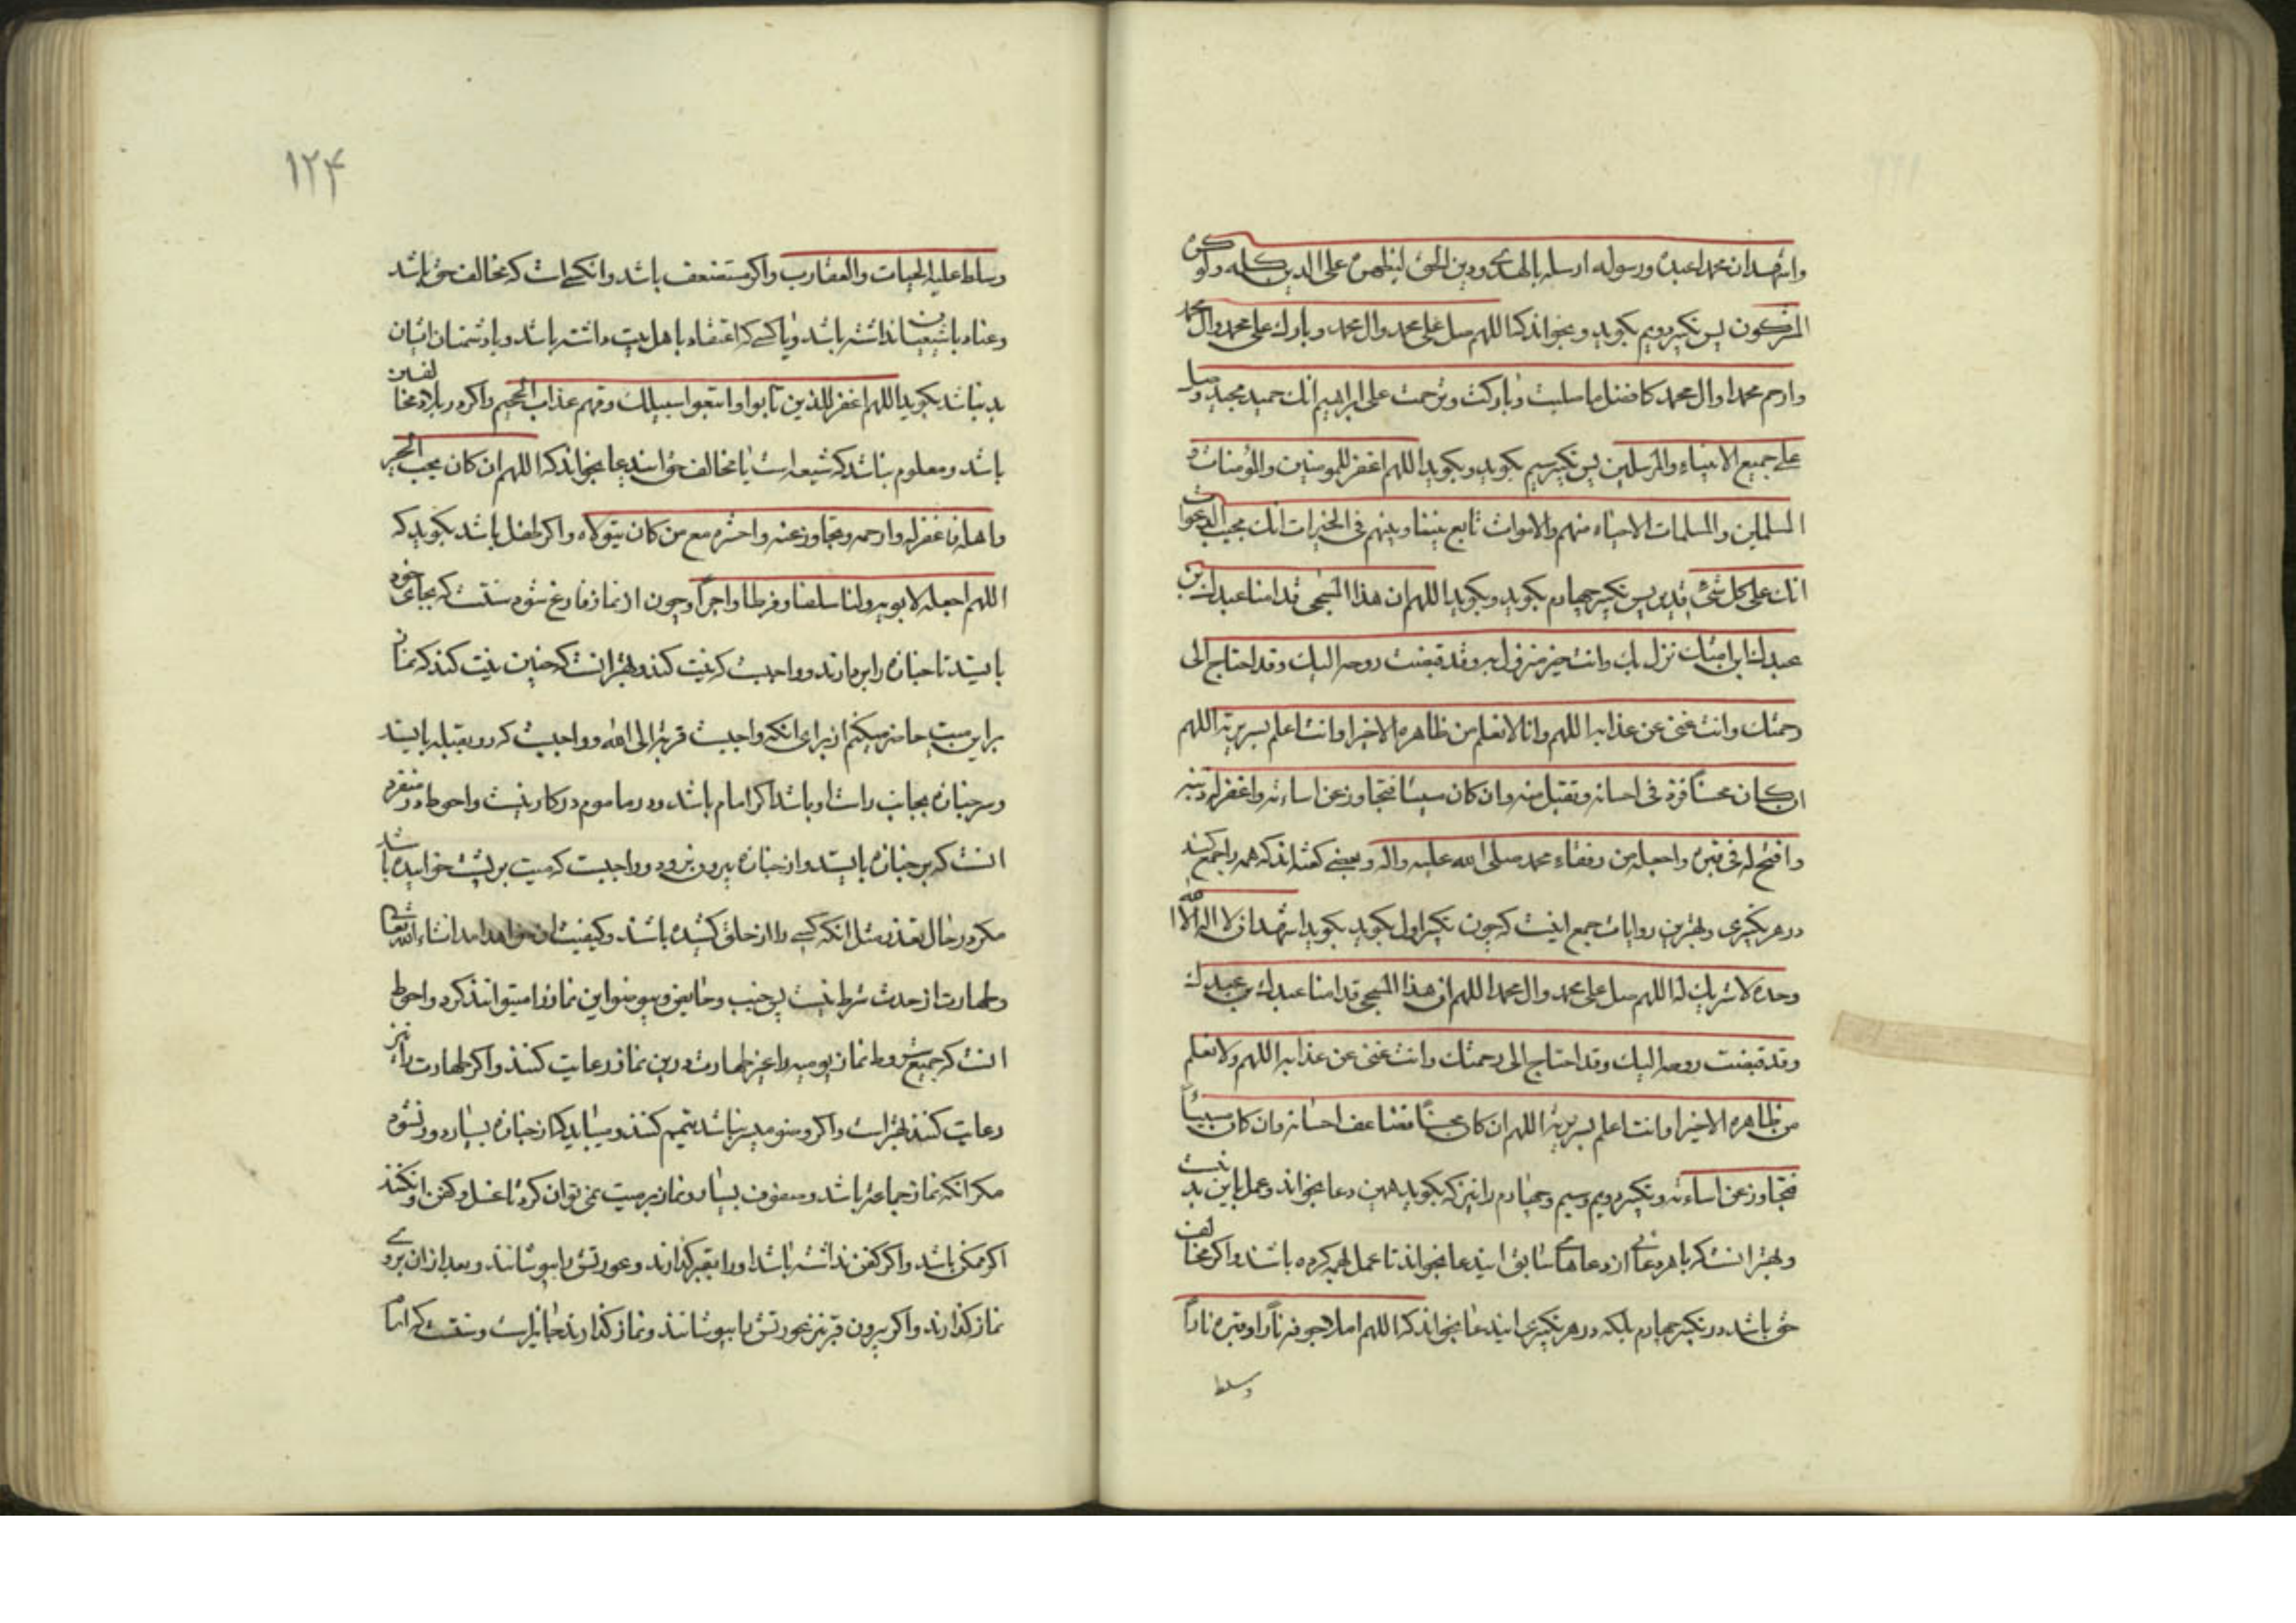 واشهد ان محمدا عبده ورسوله ارسله بالهدی ودین الحق لیظهره علی الدین کله ولو کره
المشرکون پس تکبیر دویم بکوید وبخواند که اللهم صل علی محمد وال محمد وبارك علی محمد وال محمد
وارحم محمدا وال محمد کافضل ما صلیت وبارکت وترحمت علی ابراهیم انك حمید مجید وصل
علی جمیع الانبیاء والمرسلین پس تکبیر سیم بکوید وبکوید اللهم اغفر للمومنین والمؤمنات و
المسلمین والمسلمات الاحیاء منهم والاموات تابع بیننا وبینهم فی الخیرات انك مجیب الدعوات
انك علی کل شیٔ قدیر پس تکبیر چهارم بکوید وبکوید اللهم ان هذا المسجی قدامنا عبدك بن
عبدك ابن امتك نزل بك وانت خیر منزول به وقد قبضت روحه الیك وقد احتاج الی
رحمتك وانت غنی عن عذابه اللهم وانا لا نعلم من ظاهره الا خیرا وانت اعلم بسریرته اللهم
ان کان محسنا فزد فی احسانه وتقبل منه وان کان مسیئا فتجاوز عن اساءته واغفر له ذنبه
وافتح له فی قبره واجعله من رفقاء محمد صلی الله علیه واله وبعضی کفته اند که همه را جمع کند
در هر تکبیری وبهترین روایات جمع اینست که چون تکبیر اول بکوید بکوید اشهد ان لا اله الا الله
وحده لا شریك له اللهم صل علی محمد وال محمد اللهم ان هذا المسجی قدامنا عبدك بن عبدك
وقد قبضت روحه الیك وقد احتاج الی رحمتك وانت غنی عن عذابه اللهم ولا نعلم
من ظاهره الا خیرا وانت اعلم بسریرته اللهم ان کان محسنا فضاعف احسانه وان کان مسیئاً
فتجاوز عن اساءته وتکبیر دویم وسیم وچهارم را نیز که بکوید همین دعا بخواند وعمل باین بد نیست
وبهتر انست که با هر دعائی از دعاهای سابق ایندعا بخواند تا عمل بهمه کرده باشند واکر مخالف
حق باشد در تکبیر چهارم بلکه در هر تکبیری ایندعا بخواند که اللهم املا جوفه ناراً وقبره ناراً
وسلط
۱۲۴
وسلط علیه الحیات والعقارب واکر مستضعف باشد وانکسی است که مخالف حق باشد
وعناد با شیعیان نداشته باشد ویا کسی که اعتقاد باهل بیت داشته باشد وبا دشمنان ایشان
بد نباشد بکوید اللهم اغفر للذین تابوا واتبعوا سبیلك وقهم عذاب الجحیم واکر در بلاد مخالفین
باشد ومعلوم نباشد که شیعه است یا مخالف حق ایندعا بخواند که اللهم ان کان یحب الخیر
واهله فاغفر له وارحمه وتجاوز عنه واحشره مع من کان یتولاه واکر طفل باشد بکوید که
اللهم اجعله لابویه ولنا سلفا وفرطا واجراً وچون از نماز فارغ شود سنتست که بجای خود
بایستد تا جنازه را بردارند وواجبست که نیت کند وبهتر انست که چنین نیت کند که نماز
بر این میت حاضر میکنم از برای انکه واجبست قربة الی الله وواجبست که رو بقبله بایستد
وسر جنازه بجانب راست او باشد اکر امام باشد ودر ماموم در کار نیست واحوط در منفرد
انست که بر جنازه بایستد واز جنازه بیرون نرود وواجبست که میت بر پشت خوابیده باشد
مکر در حال تعذر مثل انکه کسی را از حلق کشیده باشند وکیفیت ان خواهد امد انشاء الله تعالی
وطهارت از حدث شرط نیست پس جنب وحایض وبیوضو این نماز را میتوانند کرد واحوط
انست که جمیع شروط نماز یومیه را غیر طهارت درین نماز رعایت کنند واکر طهارت را نیز
رعایت کنند بهتر است واکر وضو میسر نباشد تیمم کنند ومیباید که از جنازه بسیار دور نشود
مکر انکه نماز جماعة باشد وصفوف بسیار ونماز بر میت نمی توان کرد تا غسل وکفن او نکنند
اکر ممکن باشد واکر کفن نداشته باشد او را بقبر کذارند وعورتش را بپوشانند وبعد از ان بروی
نماز کذارند واکر بیرون قبر نیز عورتش را بپوشانند ونماز کذارند جایز است وسنتست که امام